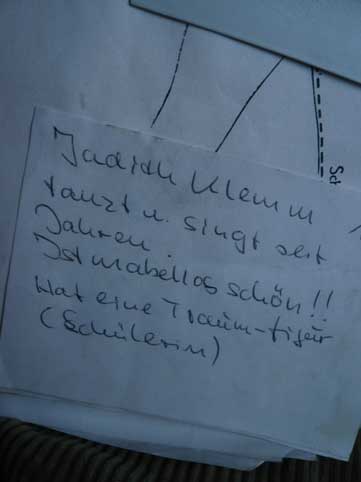 Judith Klemm
tanzt u. singt seit
Jahren.
Ist makellos schön!!
Hat eine Traum-figur
(Schülerin)
Sch